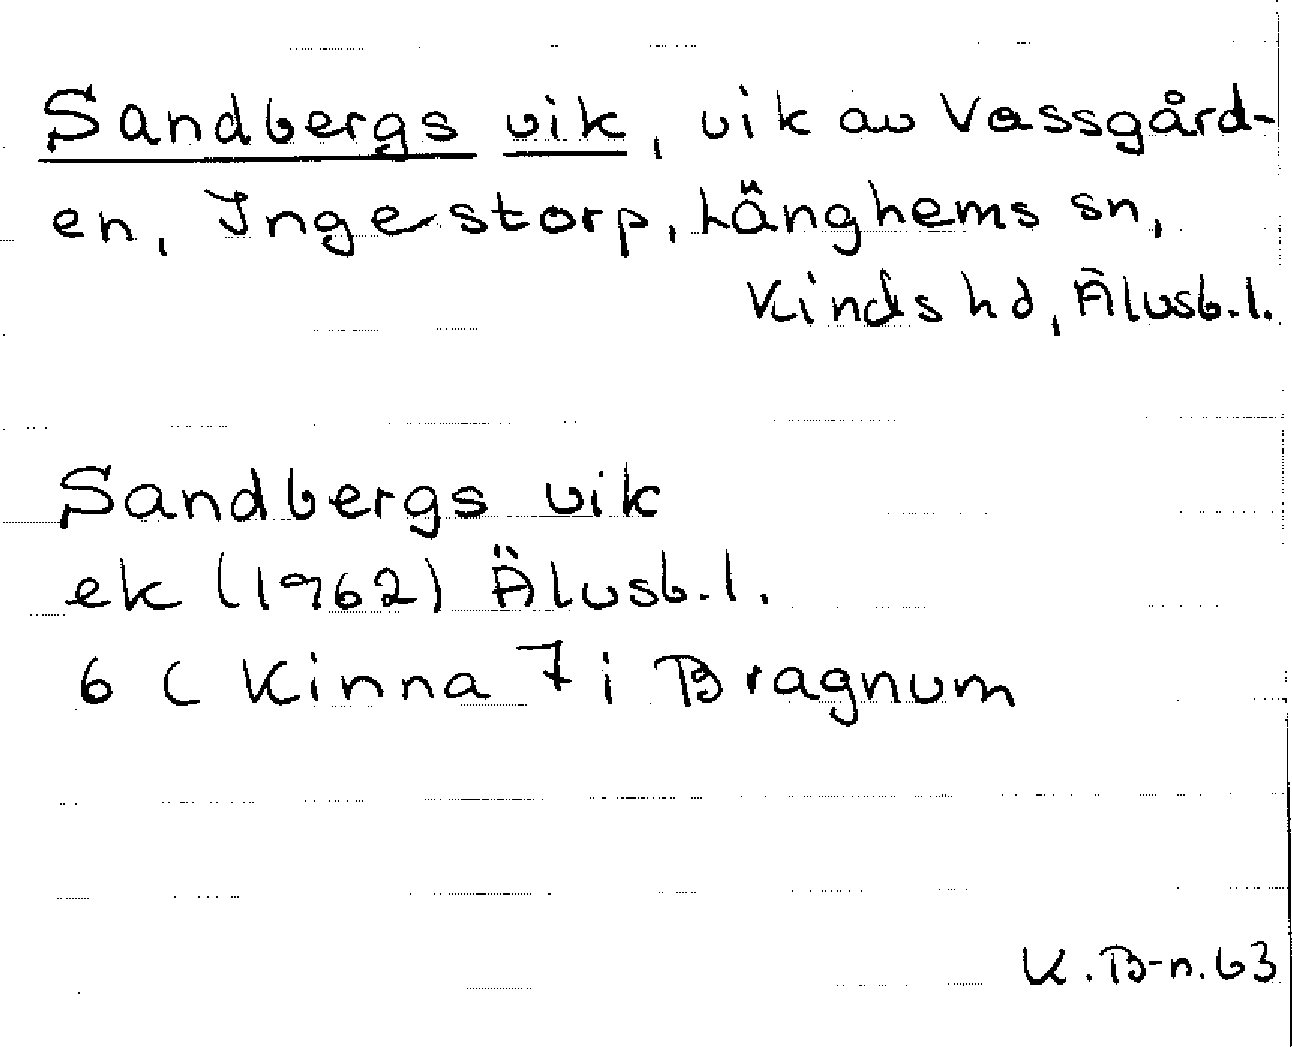 Sandbergs vik, vik av Vassgård-
en, Ingestorp, Länghems sn,
Kinds hd, Älvsb.l.
Sandbergs vik
ek (1962) Älvsb.l.
6 C Kinna 7 i Bragnum
K.B-n.63